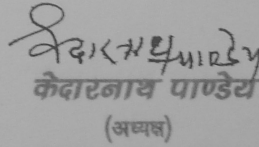 केदारनाथ पाण्डेय
केदारनाथ पाण्डेय
(अध्यक्ष)